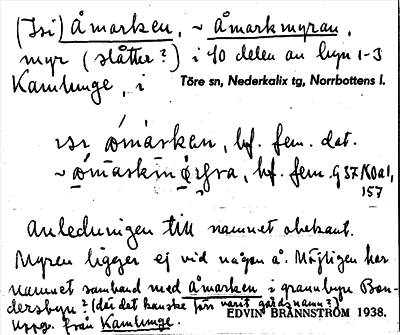 (Isi) Åmarken, ~ Åmarkmyran,
myr (slåtter?) i SO delen av byn 1-3
Kamlunge, i Töre sn, Nederkalix tg, Norrbottens l.
bf. fem. dat.
~ bf. fem.
157
Anledningen till namnet obekant.
Myren ligger ej vid någon å. Möjligen har
namnet samband med Åmarken i grannbyn Bon-
dersbyn? (där det kanske förr varit gårdsnamn?)
Uppg. från Kamlunge. EDVIN BRÄNNSTRÖM 1938.